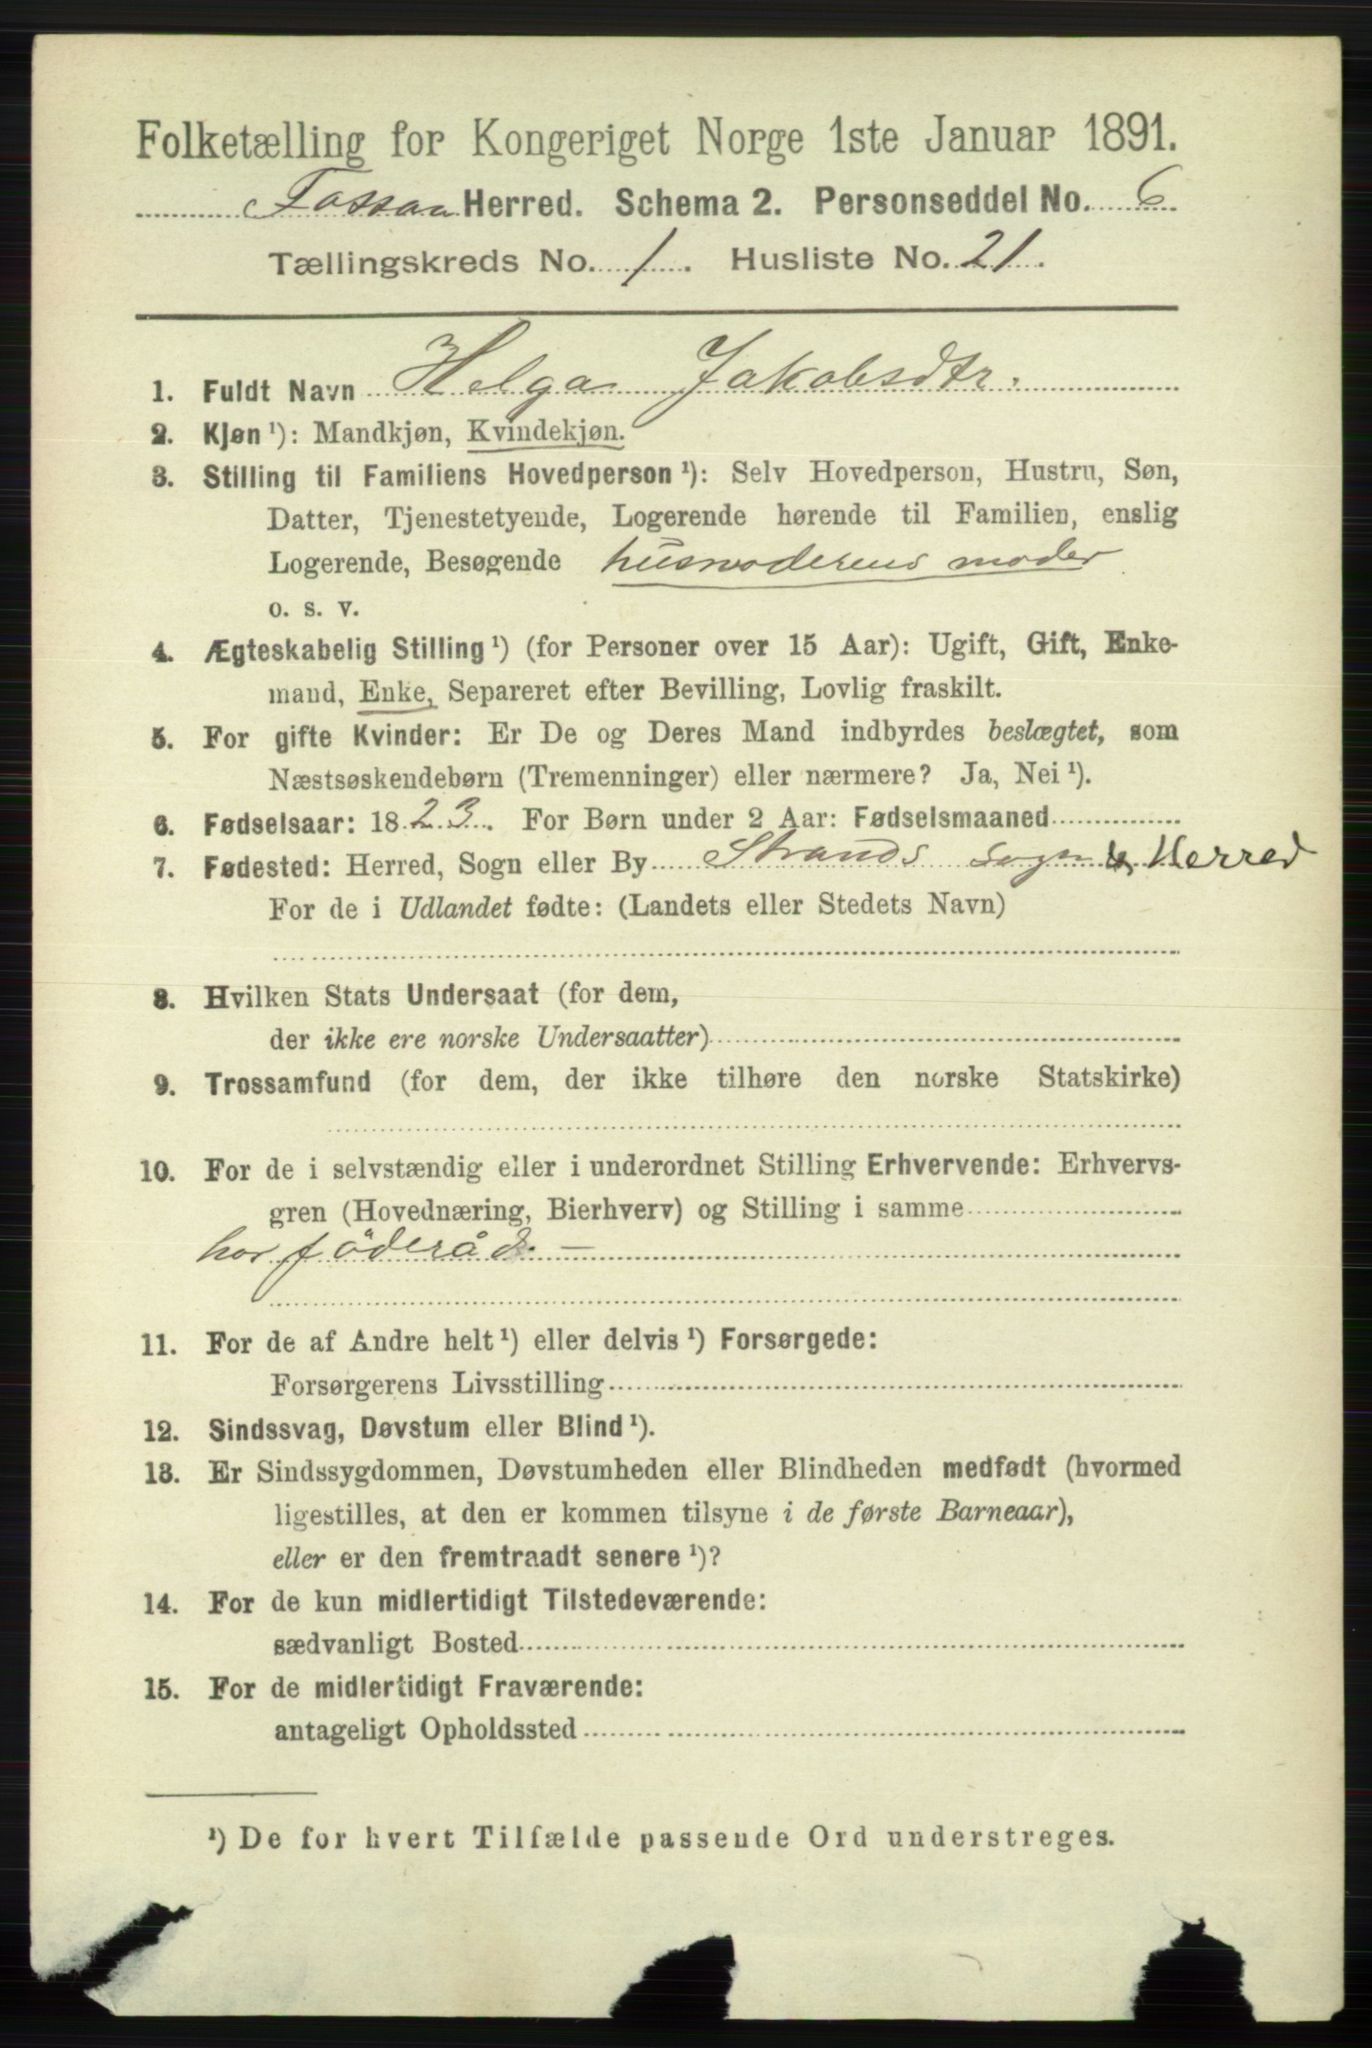 Folketælling for Kongeriget Norge 1ste Januar 1891.
Fossan Herred. Schema 2. Personseddel No. 6
Tællingskreds No. 1. Husliste No. 21.
1. Fuldt Navn Helga Jakobsdtr.
2. Kjøn ¹): Mandkjøn, Kvindekjøn.
3. Stilling til Familiens Hovedperson ¹): Selv Hovedperson, Hustru, Søn,
Datter, Tjenestetyende, Logerende hørende til Familien, enslig
Logerende, Besøgende husmoderens moder
o. s. v.
4. Ægteskabelig Stilling ¹) (for Personer over 15 Aar): Ugift, Gift, Enke-
mand, Enke, Separeret efter Bevilling, Lovlig fraskilt.
5. For gifte Kvinder: Er De og Deres Mand indbyrdes beslægtet, som
Næstsøskendebørn (Tremenninger) eller nærmere? Ja, Nei ¹).
6. Fødselsaar: 1823. For Børn under 2 Aar: Fødselsmaaned
7. Fødested: Herred, Sogn eller By Strands sogn & Herred
For de i Udlandet fødte: (Landets eller Stedets Navn)
8. Hvilken Stats Undersaat (for dem,
der ikke ere norske Undersaatter)
9. Trossamfund (for dem, der ikke tilhøre den norske Statskirke)
10. For de i selvstændig eller i underordnet Stilling Erhvervende: Erhvervs-
gren (Hovednæring, Bierhverv) og Stilling i samme
har föderåd. —
11. For de af Andre helt ¹) eller delvis ¹) Forsørgede:
Forsørgerens Livsstilling
12. Sindssvag, Døvstum eller Blind ¹).
13. Er Sindssygdommen, Døvstumheden eller Blindheden medfødt (hvormed
ligestilles, at den er kommen tilsyne i de første Barneaar),
eller er den fremtraadt senere ¹)?
14. For de kun midlertidigt Tilstedeværende:
sædvanligt Bosted
15. For de midlertidigt Fraværende:
antageligt Opholdssted
¹) De for hvert Tilfælde passende Ord understreges.